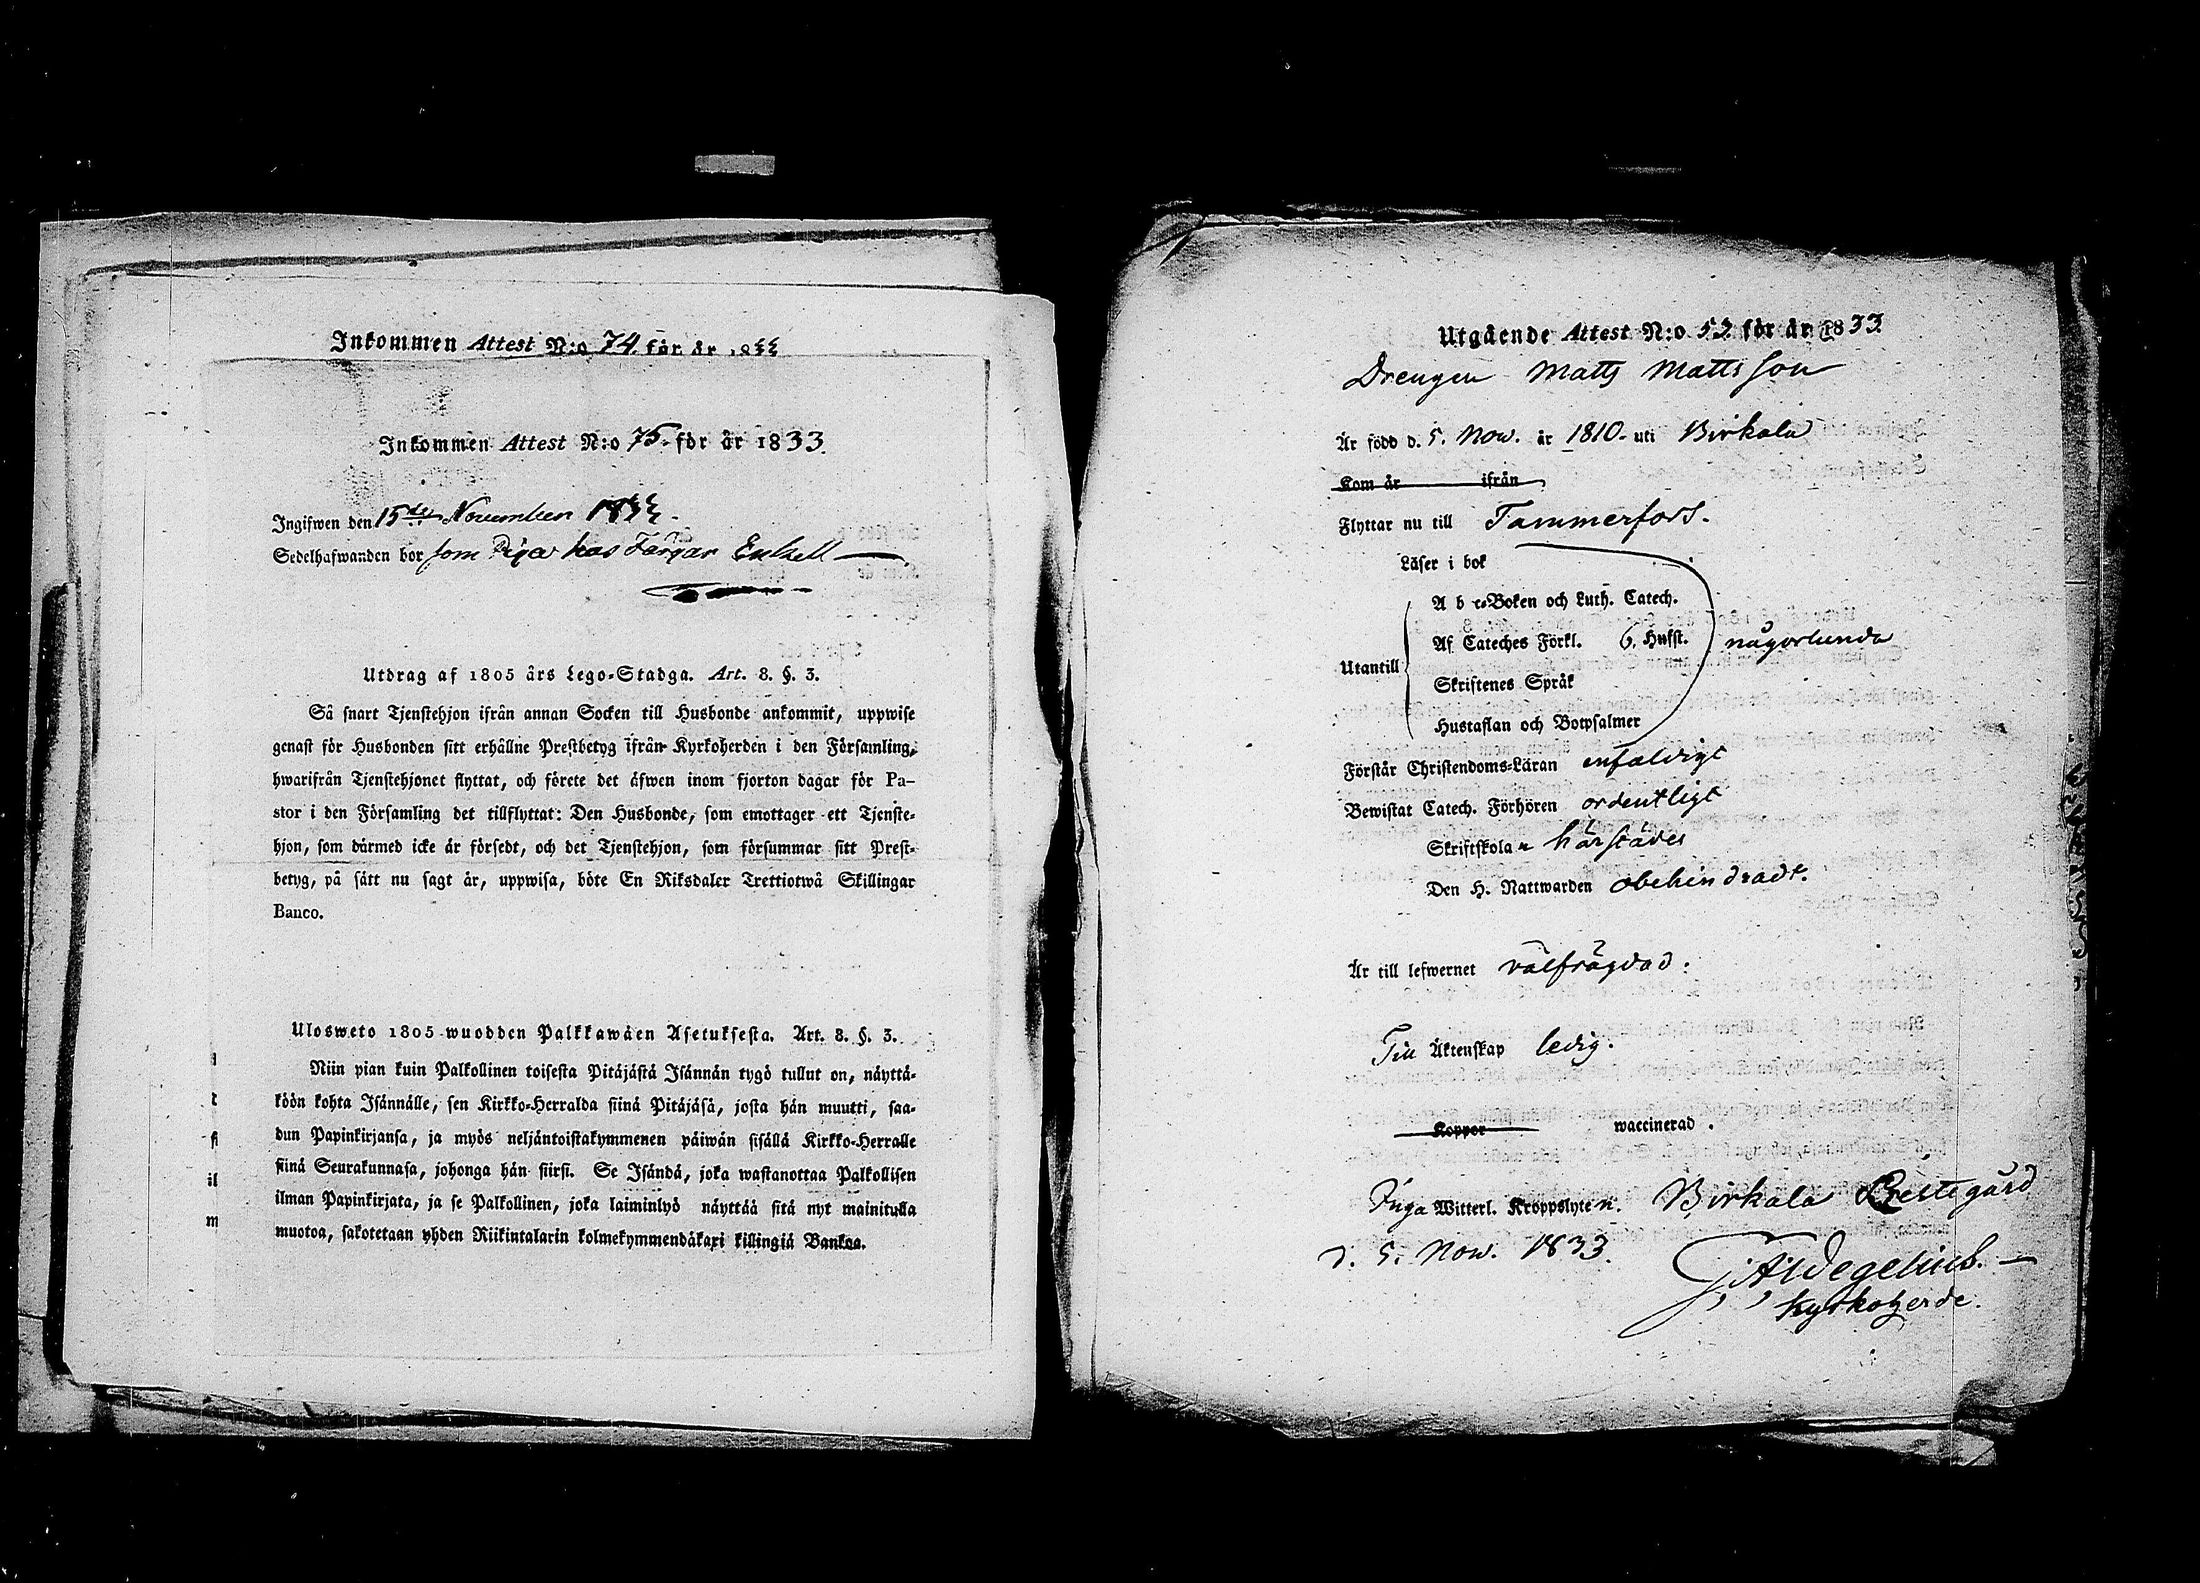 Inkommen Attest N:o 74. för år 1833
Inkommen Attest N:o 75. för år 1833.
Ingifwen den 15de November 1833.
Sedelhafwanden bor som Piga hos Färgar Enkell
Utdrag af 1805 års Lego-Stadga. Art. 8. §. 3.
Så snart Tjenstehjon ifrån annan Socken till Husbonde ankommit, uppwise
genast för Husbonden sitt erhållne Prestbetyg ifrån Kyrkoherden i den Församling,
hwarifrån Tjenstehjonet flyttat, och förete det äfwen inom fjorton dagar för Pa-
stor i den Församling det tillflyttat: Den Husbonde, som emottager ett Tjenste-
hjon, som därmed icke är försedt, och det Tjenstehjon, som försummar sitt Prest-
betyg, på sätt nu sagt är, uppwisa, böte En Riksdaler Trettiotwå Skillingar
Banco.
Ulosweto 1805 wuodden Palkkawäen Asetuksesta. Art. 8. §. 3.
Niin pian kuin Palkollinen toisesta Pitäjästä Isännän tygö tullut on, näyttä-
köön kohta Isännälle, sen Kirkko-Herralda siinä Pitäjäsä, josta hän muutti, saa-
dun Papinkirjansa, ja myös neljäntoistakymmenen päiwän sisällä Kirkko-Herralle
siinä Seurakunnasa, johonga hän siirsi. Se Isändä, joka wastanottaa Palkollisen
ilman Papinkirjata, ja se Palkollinen, joka laiminlyö näyttää sitä nyt mainitulla
muotoa, sakotetaan yhden Riikintalarin kolmekymmendäkaxi killingiä Bankoa.
Utgående Attest N:o 53. för år 1833.
Drengen Matts Mattsson
Är född d. 5. Nov. år 1810. uti Birkala
Kom år ifrån
Flyttar nu till Tammerfors.
Läser i bok
A b c-Boken och Luth. Catech.
Af Cateches Förkl. 6. Hufst. någorlunda
Utantill
Skriftenes Språk
Hustaflan och Botpsalmer
Förstår Christendoms-Läran enfaldigt
Bewistat Catech. Förhören ordentligt
Skriftskolan härstädes
Den H. Nattwarden obehindradt.
Är till lefwernet välfrägdad.
Till Äktenskap ledig.
Koppor waccinerad.
Inga Witterl. Kroppslyten. Birkala Prestegård
d. 5. Nov. 1833.
Kyrkoherde.